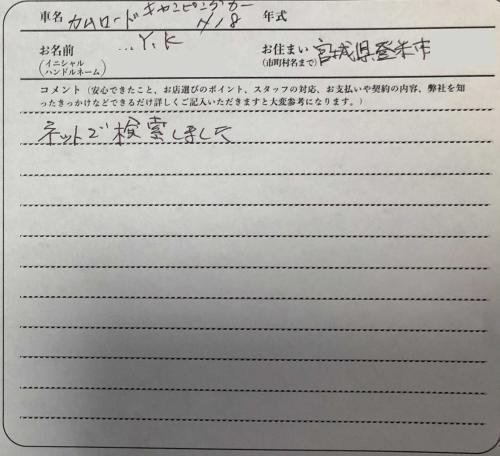 車名 カムロード キャンピングカー 年式
お名前 ...Y,K お住まい 宮城県登米市
(イニシャル ハンドルネーム) (市町村名まで)
コメント（安心できたこと、お店選びのポイント、スタッフの対応、お支払いや契約の内容、弊社を知
ったきっかけなどできるだけ詳しくご記入いただきますと大変参考になります。）
ネットで検索しました